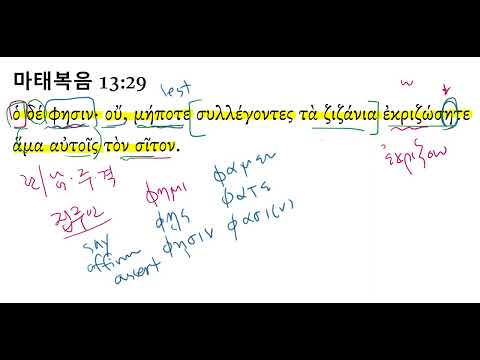 마태복음 13:29
lest
ὁ δέ φησιν· οὔ, μήποτε [συλλέγοντες τὰ ζιζάνια] ἐκριζώσητε
ἅμα αὐτοῖς τὸν σῖτον.
ἐκριζοω
φημι φαμεν
φης φατε
φησιν φασι(ν)
say
affirm
assert